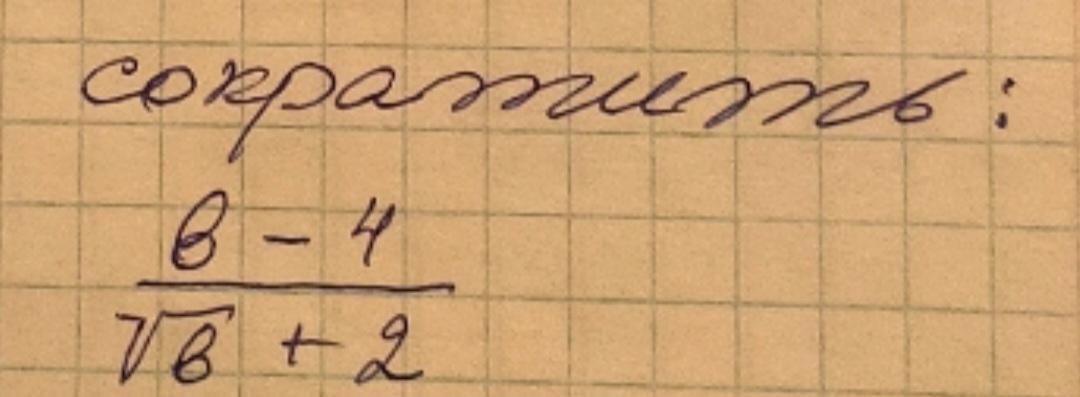 сократить:
в - 4
√в + 2